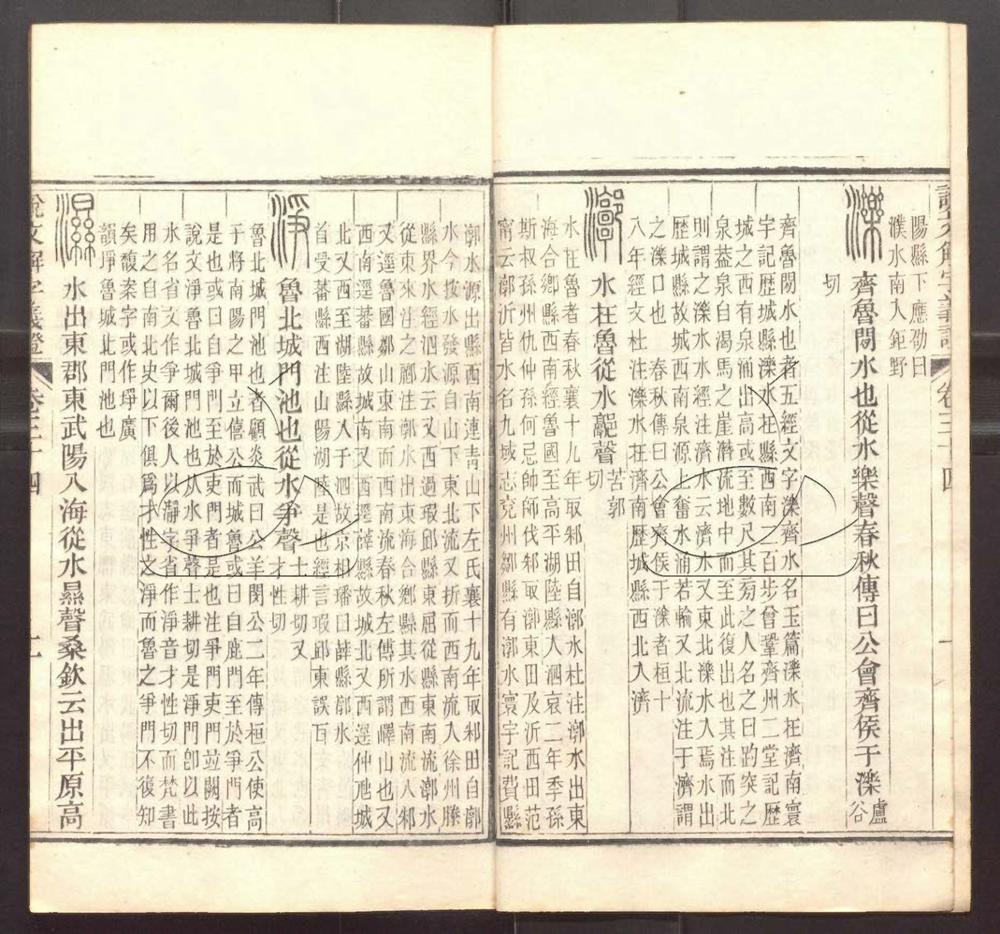 陽縣下應劭曰
濮水南入鉅野
濼 齊魯閒水也從水樂聲春秋傳曰公會齊侯于濼 盧谷
切
齊魯閒水也者五經文字濼齊水名玉篇濼水在濟南寰
宇記歷城縣濼水在縣西南二百步曾鞏齊州二堂記歷
城之西有泉涌出高或至數尺其旁之人名之曰趵突之
泉葢泉自渴馬之崖潛流地中而至此復出也其注而北
則謂之濼水水經注濟水云濟水又東北濼水入焉水出
歷城縣故城西南泉源上奮水涌若輪又北流注于濟謂
之濼口也 春秋傳曰公會齊侯于濼者桓十
八年經文杜注濼水在濟南歷城縣西北入濟
漷 水在魯從水郭聲 苦郭切
水在魯者春秋襄十九年取邾田自漷水杜注漷水出東
海合鄉縣西南經魯國至高平湖陸縣入泗哀二年季孫
斯叔孫州仇仲孫何忌帥師伐邾取漷東田及沂西田范
甯云漷沂皆水名九域志兗州鄒縣有漷水寰宇記費縣
漷水源出縣西南連青山下左氏襄十九年取邾田自漷
水今按水發源自山下東北流又折而西南流入徐州滕
縣界水經泗水云又西過瑕邱縣東屈從縣東南流漷水
從東來注之酈注漷水出東海合鄉縣其水西南流入邾
又逕魯國鄒山東南而西南流春秋左傳所謂嶧山也又
西南逕蕃縣故城南又西逕薛縣故城北又西逕仲虺城
北又西至湖陸縣入于泗故京相璠曰薛縣漷水
首受蕃縣西注山陽湖陸是也經言瑕邱東誤耳
淨 魯北城門池也從水爭聲 士耕切又才性切
魯北城門池也者顧炎武曰公羊閔公二年傳桓公使高
子將南陽之甲立僖公而城魯或曰自鹿門至於爭門者
是也或曰自爭門至於吏門者是也注爭門吏門並闕按
說文淨魯北城門池也从水爭聲士耕切是淨門卽以此
水名省文作爭爾後人以瀞字省作淨音才性切而梵書
用之自南北史以下俱爲才性之淨而魯之爭門不復知
矣馥案字或作埩廣
韻埩魯城北門池也
濕 水出東郡東武陽入海從水㬎聲桑欽云出平原高
說文解字義證 卷三十四 二